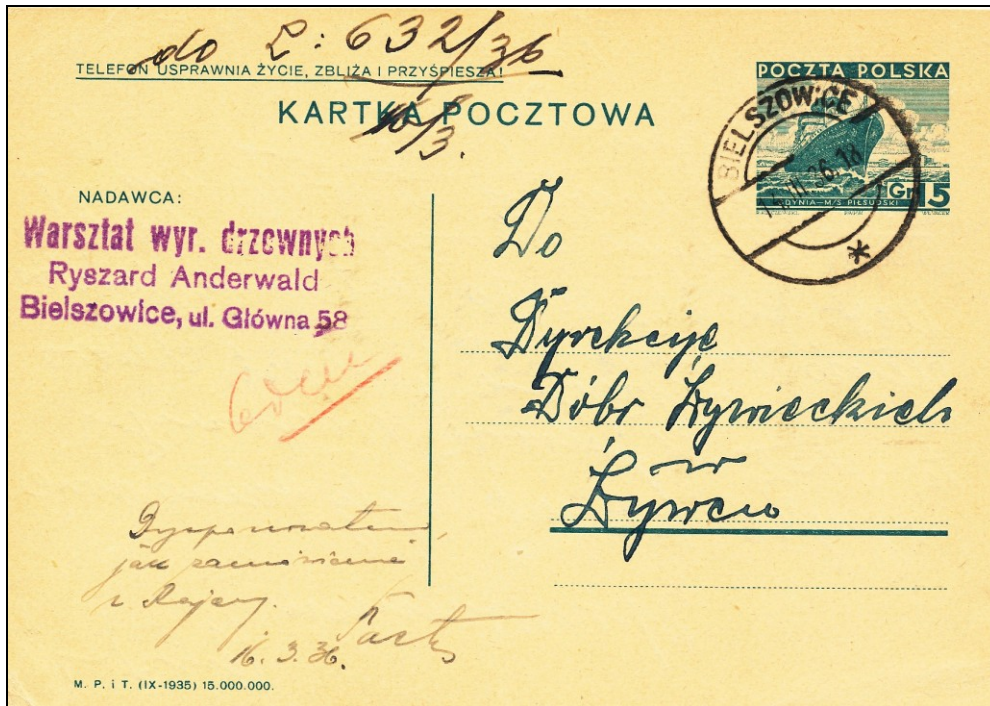 do L: 632/36
TELEFON USPRAWNIA ŻYCIE, ZBLIŻA I PRZYŚPIESZA!
KARTKA POCZTOWA
16/3.
POCZTA POLSKA
BIELSZOWICE
III 36.18
Gr 15
GDYNIA—M/S PIŁSUDSKI
NADAWCA:
Warsztat wyr. drzewnych
Ryszard Anderwald
Bielszowice, ul. Główna 58
Do
Dyrekcije
Dóbr Żywieckich
w
Żywcu
jak zamówienie
z
16. 3. 36.
M. P. i T. (IX-1935) 15.000.000.